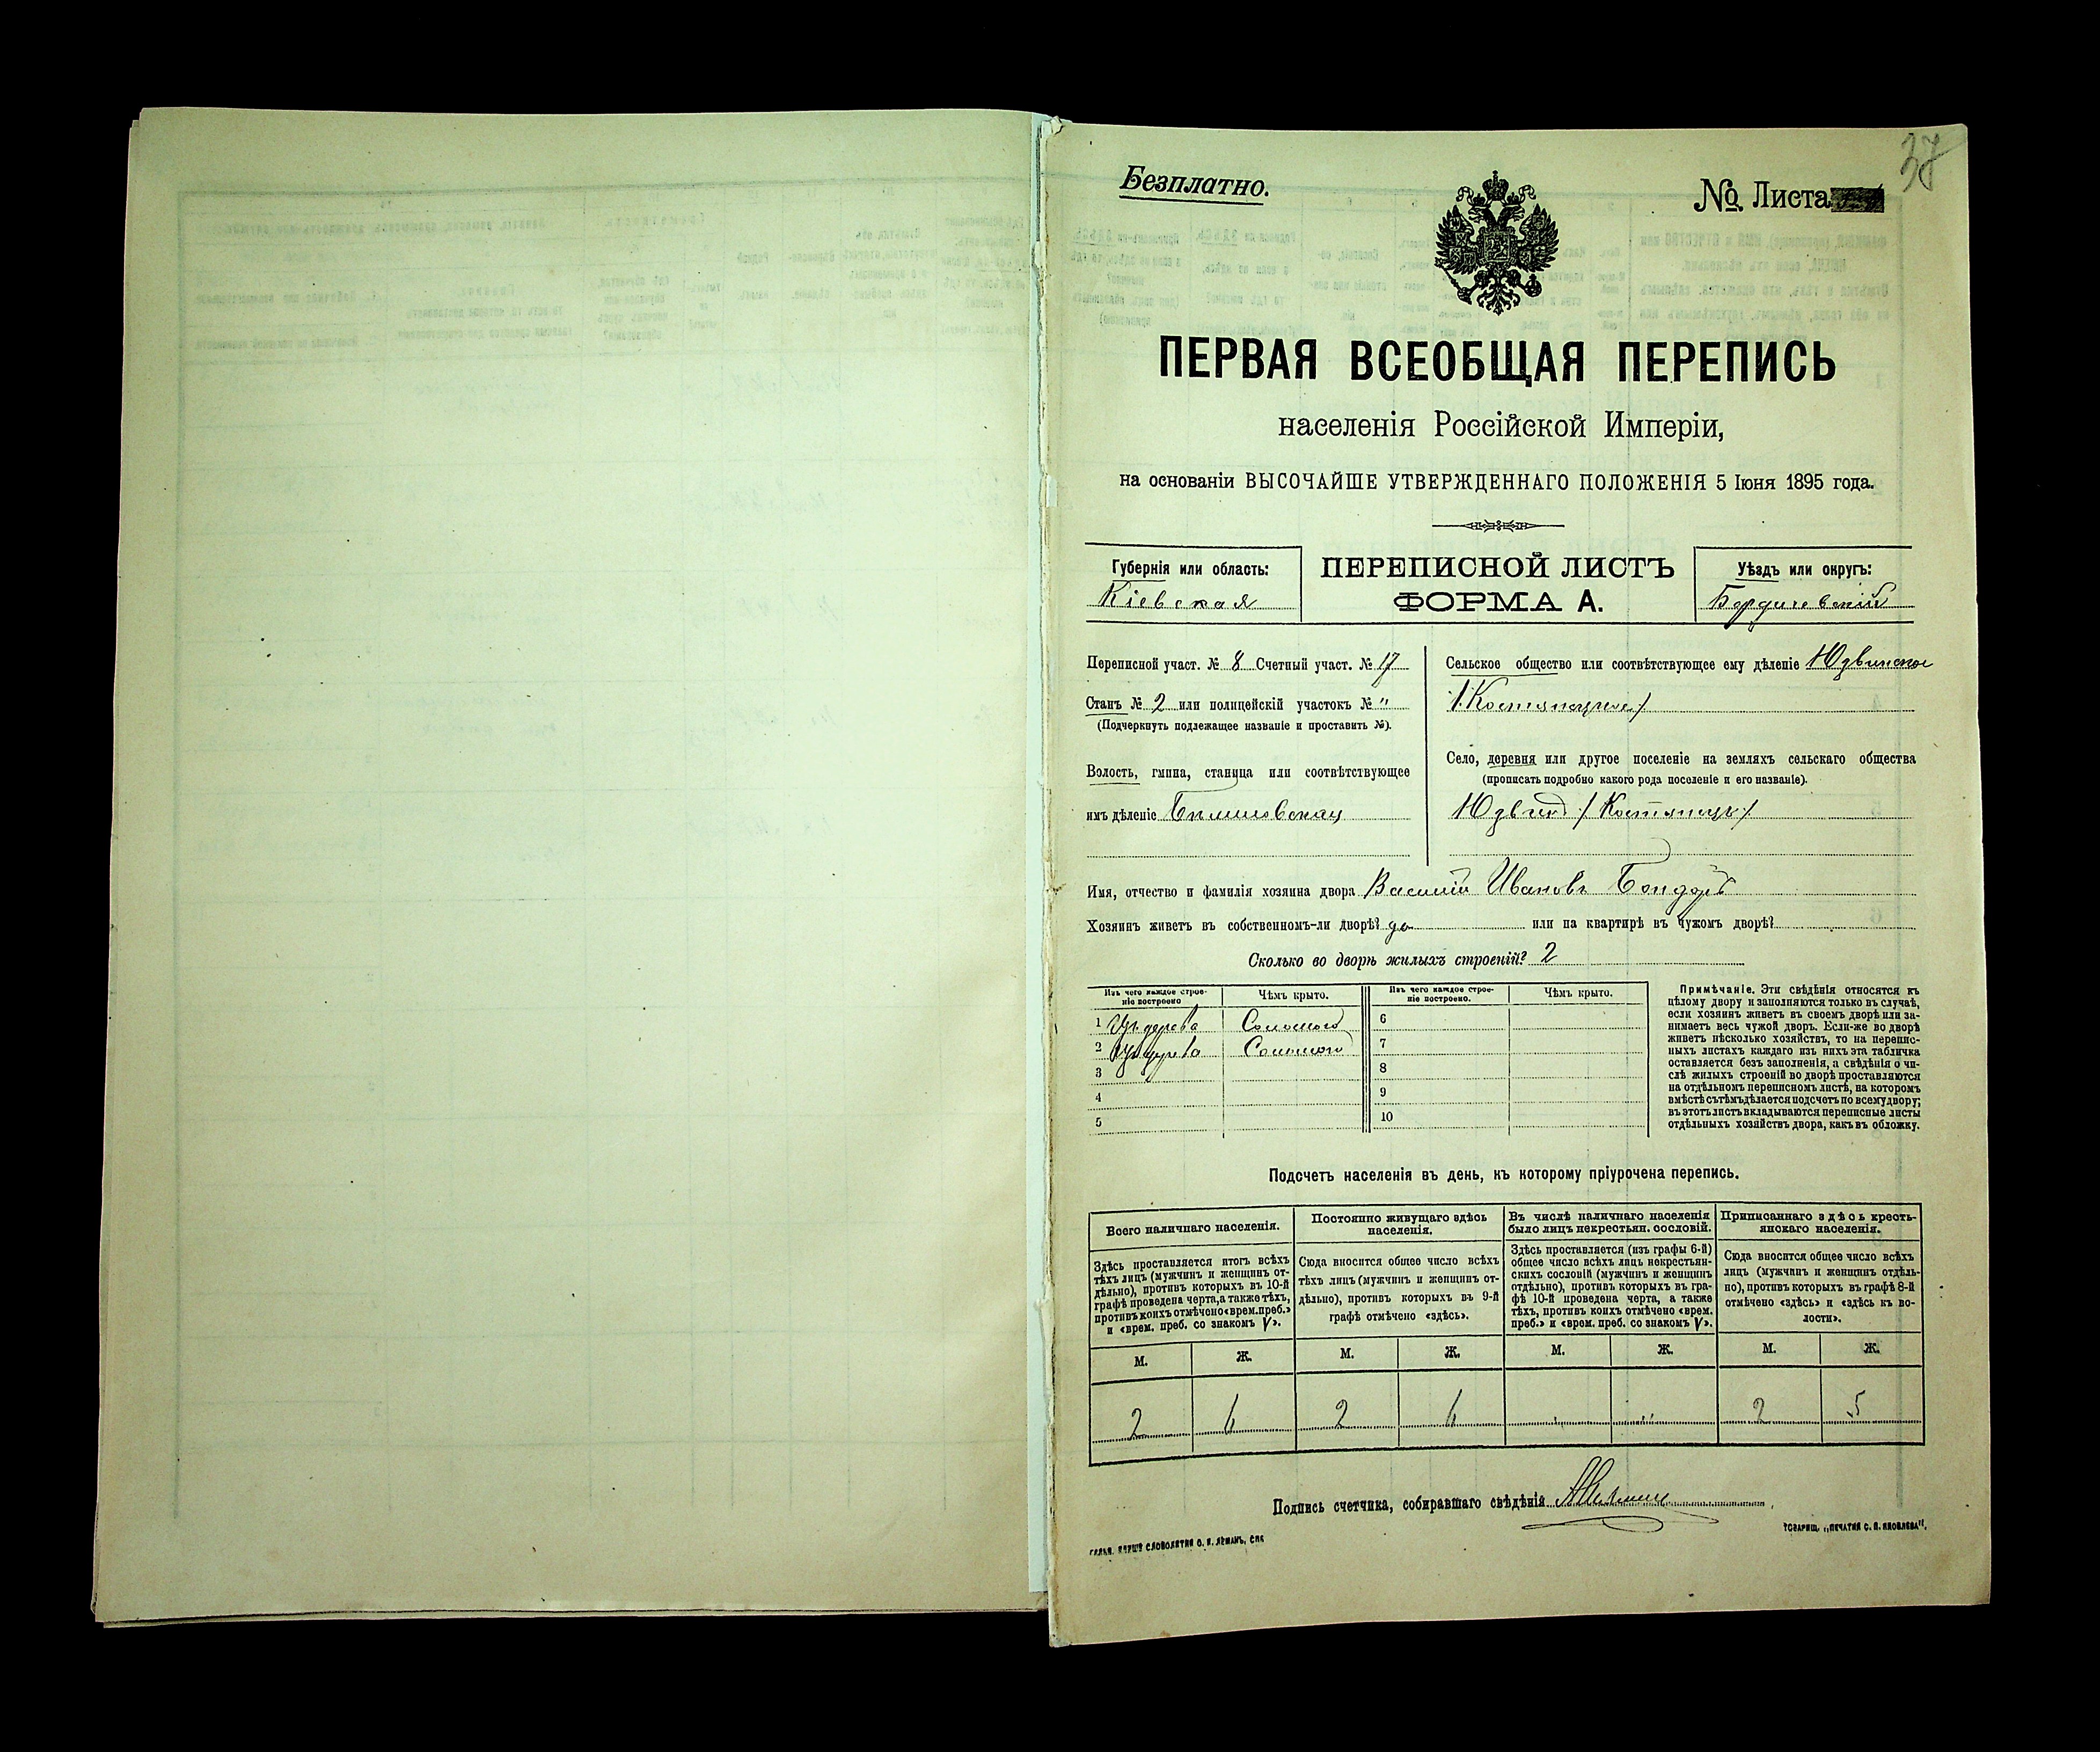 37
Безплатно.
№ Листа
ПЕРВАЯ ВСЕОБЩАЯ ПЕРЕПИСЬ
населенія Россійской Имперіи,
на основаніи ВЫСОЧАЙШЕ УТВЕРЖДЕННАГО ПОЛОЖЕНІЯ 5 Іюня 1895 года.
Губернія или область:
Кіевская
ПЕРЕПИСНОЙ ЛИСТЪ
ФОРМА А.
Уѣздъ или округъ:
Бердичевскій
Переписной участ. № 8 Счетный участ. № 17
Станъ № 2 или полицейскій участокъ № "
(Подчеркнуть подлежащее названіе и проставить №).
Волость, гмина, станица или соотвѣтствующее
имъ дѣленіе
Сельское общество или соотвѣтствующее ему дѣленіе
Село, деревня или другое поселеніе на земляхъ сельскаго общества
(прописать подробно какого рода поселеніе и его названіе).
Имя, отчество и фамилія хозяина двора Василій Ивановъ Бондарь
Хозяинъ живетъ въ собственномъ-ли дворѣ? да или на квартирѣ въ чужомъ дворѣ?
Сколько во дворѣ жилыхъ строеній? 2
Изъ чего каждое строе-
ніе построено
Чѣмъ крыто.
Изъ чего каждое строе-
ніе построено.
Чѣмъ крыто.
1 Изъ дерева Соломою 6
2 Изъ дерева Соломою 7
3 8
4 9
5 10
Примѣчаніе. Эти свѣдѣнія относятся къ
цѣлому двору и заполняются только въ случаѣ,
если хозяинъ живетъ въ своемъ дворѣ или за-
нимаетъ весь чужой дворъ. Если-же во дворѣ
живетъ нѣсколько хозяйствъ, то на перепис-
ныхъ листахъ каждаго изъ нихъ эта табличка
оставляется безъ заполненія, а свѣдѣнія о чи-
слѣ жилыхъ строеній во дворѣ проставляются
на отдѣльномъ переписномъ листѣ, на которомъ
вмѣстѣ съ тѣмъ дѣлается подсчетъ по всему двору;
въ этотъ листъ вкладываются переписные листы
отдѣльныхъ хозяйствъ двора, какъ въ обложку.
Подсчетъ населенія въ день, къ которому пріурочена перепись.
Всего наличнаго населенія.
Здѣсь проставляется итогъ всѣхъ
тѣхъ лицъ (мужчинъ и женщинъ от-
дѣльно), противъ которыхъ въ 10-й
графѣ проведена черта, а также тѣхъ,
противъ коихъ отмѣчено «врем. преб.»
и «врем. преб. со знакомъ V».
Постоянно живущаго здѣсь
населенія.
Сюда вносится общее число всѣхъ
тѣхъ лицъ (мужчинъ и женщинъ от-
дѣльно), противъ которыхъ въ 9-й
графѣ отмѣчено «здѣсь».
Въ числѣ наличнаго населенія
было лицъ некрестьян. сословій.
Здѣсь проставляется (изъ графы 6-й)
общее число всѣхъ лицъ некрестьян-
скихъ сословій (мужчинъ и женщинъ
отдѣльно), противъ которыхъ въ гра-
фѣ 10-й проведена черта, а также
тѣхъ, противъ коихъ отмѣчено «врем.
преб.» и «врем. преб. со знакомъ V».
Приписаннаго здѣсь кресть-
янскаго населенія.
Сюда вносится общее число всѣхъ
лицъ (мужчинъ и женщинъ отдѣль-
но), противъ которыхъ въ графѣ 8-й
отмѣчено «здѣсь» и «здѣсь къ во-
лости».
М. Ж. М. Ж. М. Ж. М. Ж.
2 6 2 6 " " 2 5
Подпись счетчика, собиравшаго свѣдѣнія
СЛОВОЛИТНИ О. И. ЛЕМАНЪ, СПБ
ТОВАРИЩ. „ПЕЧАТНЯ С. П. ЯКОВЛЕВА“.